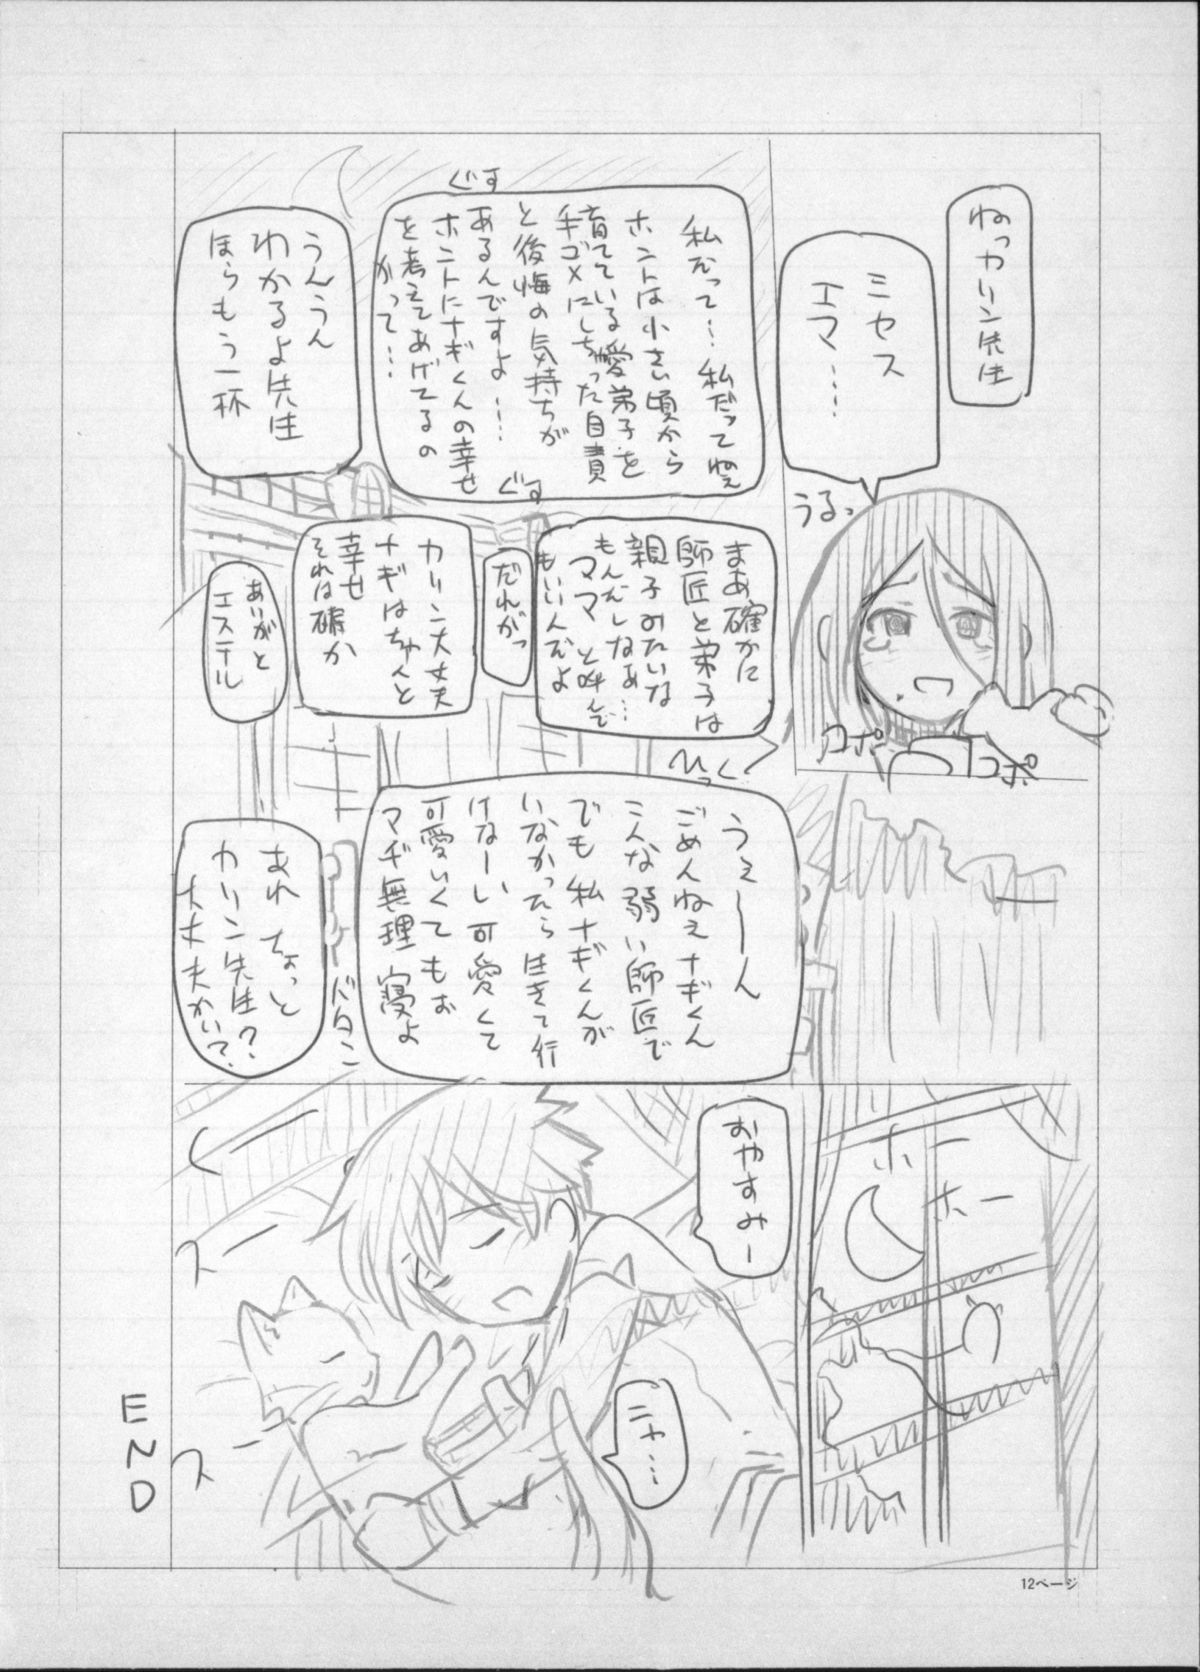 ねっカリン先生
ミセス
エマ……
うるっ
コポ
コポ
ぐす
私だって…私だってねぇ
ホントは小さい頃から
育てている愛弟子を
手ゴメにしちゃった自責
と後悔の気持ちが
あるんですよ……
ホントにナギくんの幸せ
を考えてあげてるの
かって…
ぐす
うんうん
わかるよ先生
ほらもう一杯
まあ確かに
師匠と弟子は
親子みたいな
もんだしなぁ…
ママと呼んで
もいいんだよ
だれがっ
カリン大丈夫
ナギはちゃんと
幸せ
それは確か
あいがと
エステル
ひっく
うぇーーん
ごめんねぇナギくん
こんな弱い師匠で
でも私ナギくんが
いなかったら生きて行
けなーい可愛くて
可愛いくてもぉ
マヂ無理寝よ
バタン
あれちょっと
カリン先生?
大丈夫かい?
ホー
ホー
おやすみー
ニャ…
くー
スー
スー
END
12ページ